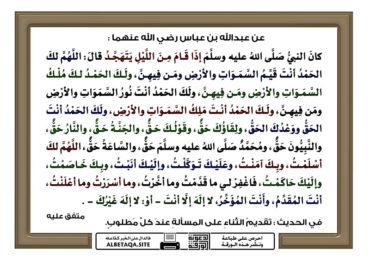 عن عبدالله بن عباس رضي الله عنهما :
كانَ النبيُّ صَلَّى اللهُ عليه وسلَّمَ إذَا قَامَ مِنَ اللَّيْلِ يَتَهَجَّدُ قالَ: اللَّهُمَّ لكَ
الحَمْدُ أنْتَ قَيِّمُ السَّمَوَاتِ والأرْضِ ومَن فِيهِنَّ، ولَكَ الحَمْدُ لكَ مُلْكُ
السَّمَوَاتِ والأرْضِ ومَن فِيهِنَّ، ولَكَ الحَمْدُ أنْتَ نُورُ السَّمَوَاتِ والأرْضِ
ومَن فِيهِنَّ، ولَكَ الحَمْدُ أنْتَ مَلِكُ السَّمَوَاتِ والأرْضِ، ولَكَ الحَمْدُ أنْتَ
الحَقُّ ووَعْدُكَ الحَقُّ، ولِقَاؤُكَ حَقٌّ، وقَوْلُكَ حَقٌّ، والجَنَّةُ حَقٌّ، والنَّارُ حَقٌّ،
والنَّبِيُّونَ حَقٌّ، ومُحَمَّدٌ صَلَّى اللهُ عليه وسلَّمَ حَقٌّ، والسَّاعَةُ حَقٌّ، اللَّهُمَّ لكَ
أسْلَمْتُ، وبِكَ آمَنْتُ، وعَلَيْكَ تَوَكَّلْتُ، وإلَيْكَ أنَبْتُ، وبِكَ خَاصَمْتُ،
وإلَيْكَ حَاكَمْتُ، فَاغْفِرْ لي ما قَدَّمْتُ وما أخَّرْتُ، وما أسْرَرْتُ وما أعْلَنْتُ،
أنْتَ المُقَدِّمُ، وأَنْتَ المُؤَخِّرُ، لا إلَهَ إلَّا أنْتَ - أوْ: لا إلَهَ غَيْرُكَ - .
متفق عليه
في الحديث : تقديمُ الثناءِ على المسألةِ عندَ كلِّ مطلوبٍ.
احرص على طباعة
ونشر هذه الورقة
فالدال على الخير كفاعله
ALBETAQA.SITE